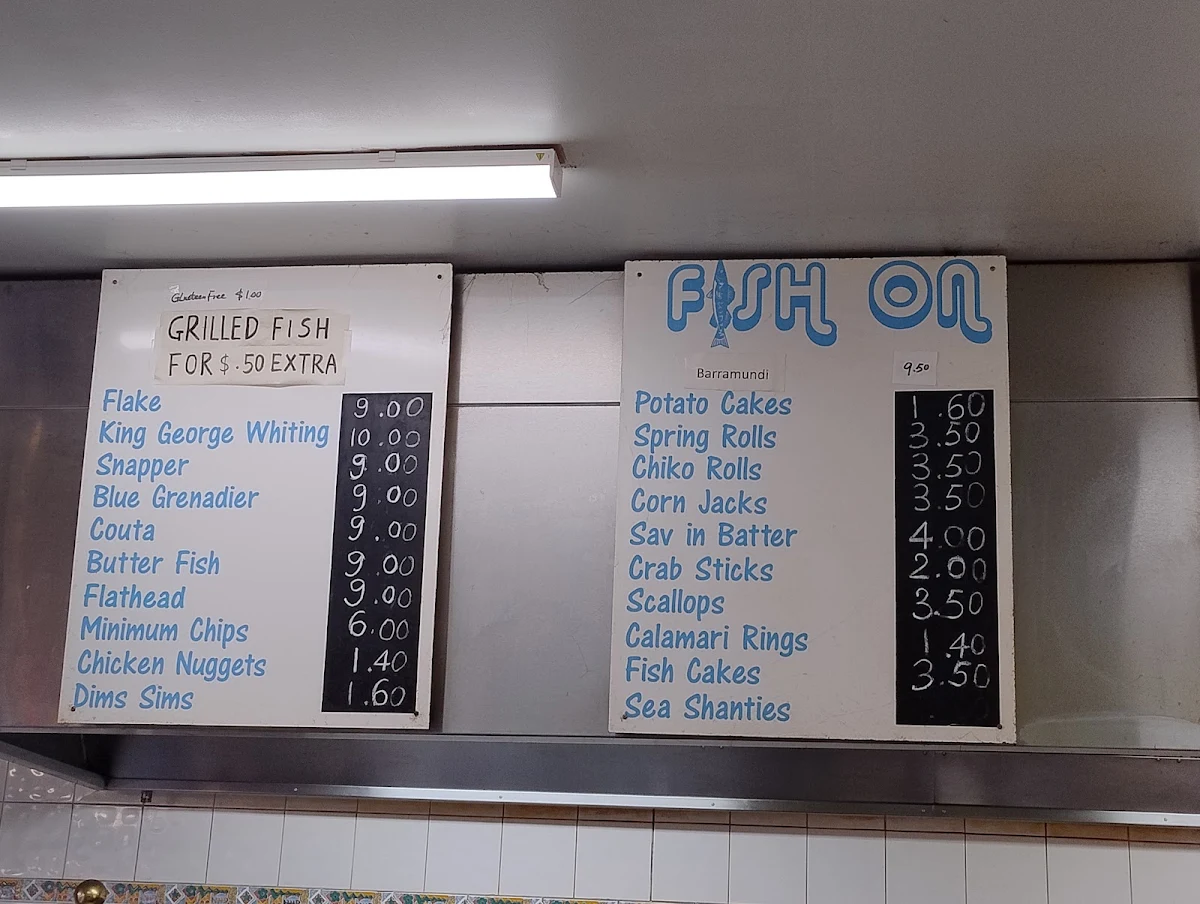 Gluteen Free $1.00
GRILLED FISH
FOR $.50 EXTRA
Flake 9.00
King George Whiting 10.00
Snapper 9.00
Blue Grenadier 9.00
Couta 9.00
Butter Fish 9.00
Flathead 9.00
Minimum Chips 6.00
Chicken Nuggets 1.40
Dims Sims 1.60
FISH ON
Barramundi 9.50
Potato Cakes 1.60
Spring Rolls 3.50
Chiko Rolls 3.50
Corn Jacks 3.50
Sav in Batter 4.00
Crab Sticks 2.00
Scallops 3.50
Calamari Rings 1.40
Fish Cakes 3.50
Sea Shanties